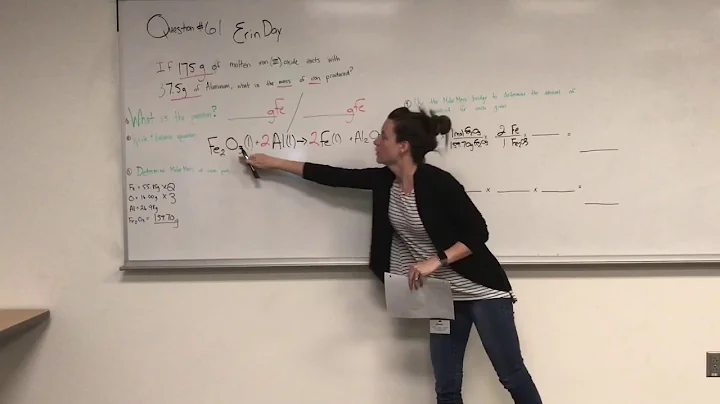 Question #61 Erin Day
If 175 g of molten iron (III) oxide reacts with
37.5g of Aluminum, what is the mass of iron produced?
① What is the question? ____ gFe / ____ gFe
balance equation
Fe₂O₃(l) + 2Al(l) → 2Fe(l) + Al₂O
③ Determine Molar Mass of each
Fe = 55.85g x 2
O = 16.00g x 3
Al = 26.98g
Fe₂O₃ = 159.70g
Use the Molar Mass bridge to determine the amount of
for each given
1mol Fe₂O₃ 2 Fe
159.70g Fe₂O₃ 1 Fe₂O₃ =
x x =